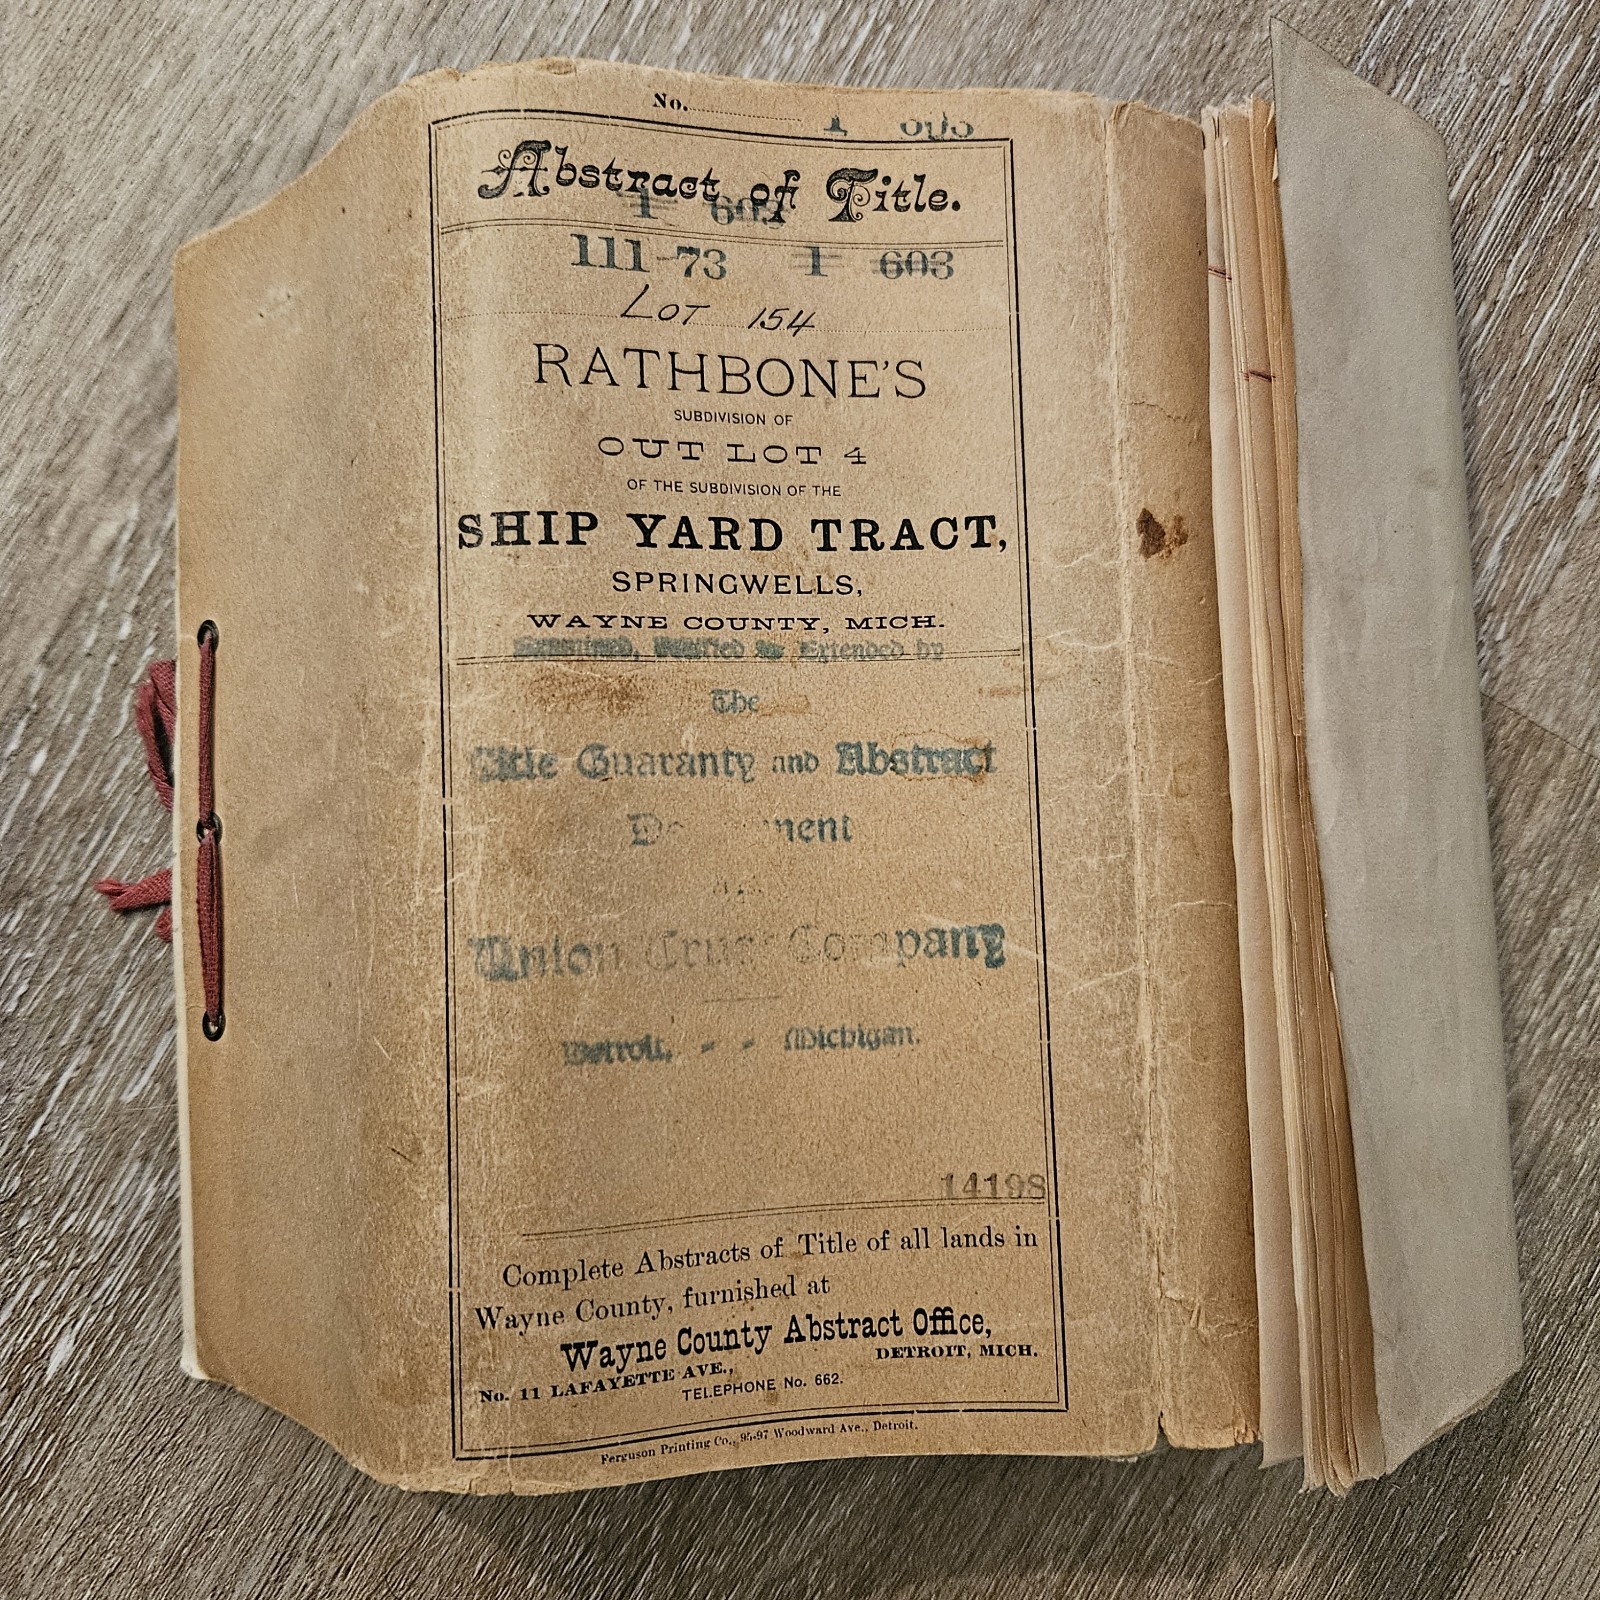 No.
1 603
Abstract of Title.
1 603
111-73 1 603
LOT 154
RATHBONE'S
SUBDIVISION OF
OUT LOT 4
OF THE SUBDIVISION OF THE
SHIP YARD TRACT,
SPRINGWELLS,
WAYNE COUNTY, MICH.
Examined, Certified & Extended by
The
Title Guaranty and Abstract
Union Trust Company
Detroit, - - Michigan.
14198
Complete Abstracts of Title of all lands in
Wayne County, furnished at
Wayne County Abstract Office,
No. 11 LAFAYETTE AVE., DETROIT, MICH.
TELEPHONE No. 662.
Ferguson Printing Co., 95-97 Woodward Ave., Detroit.